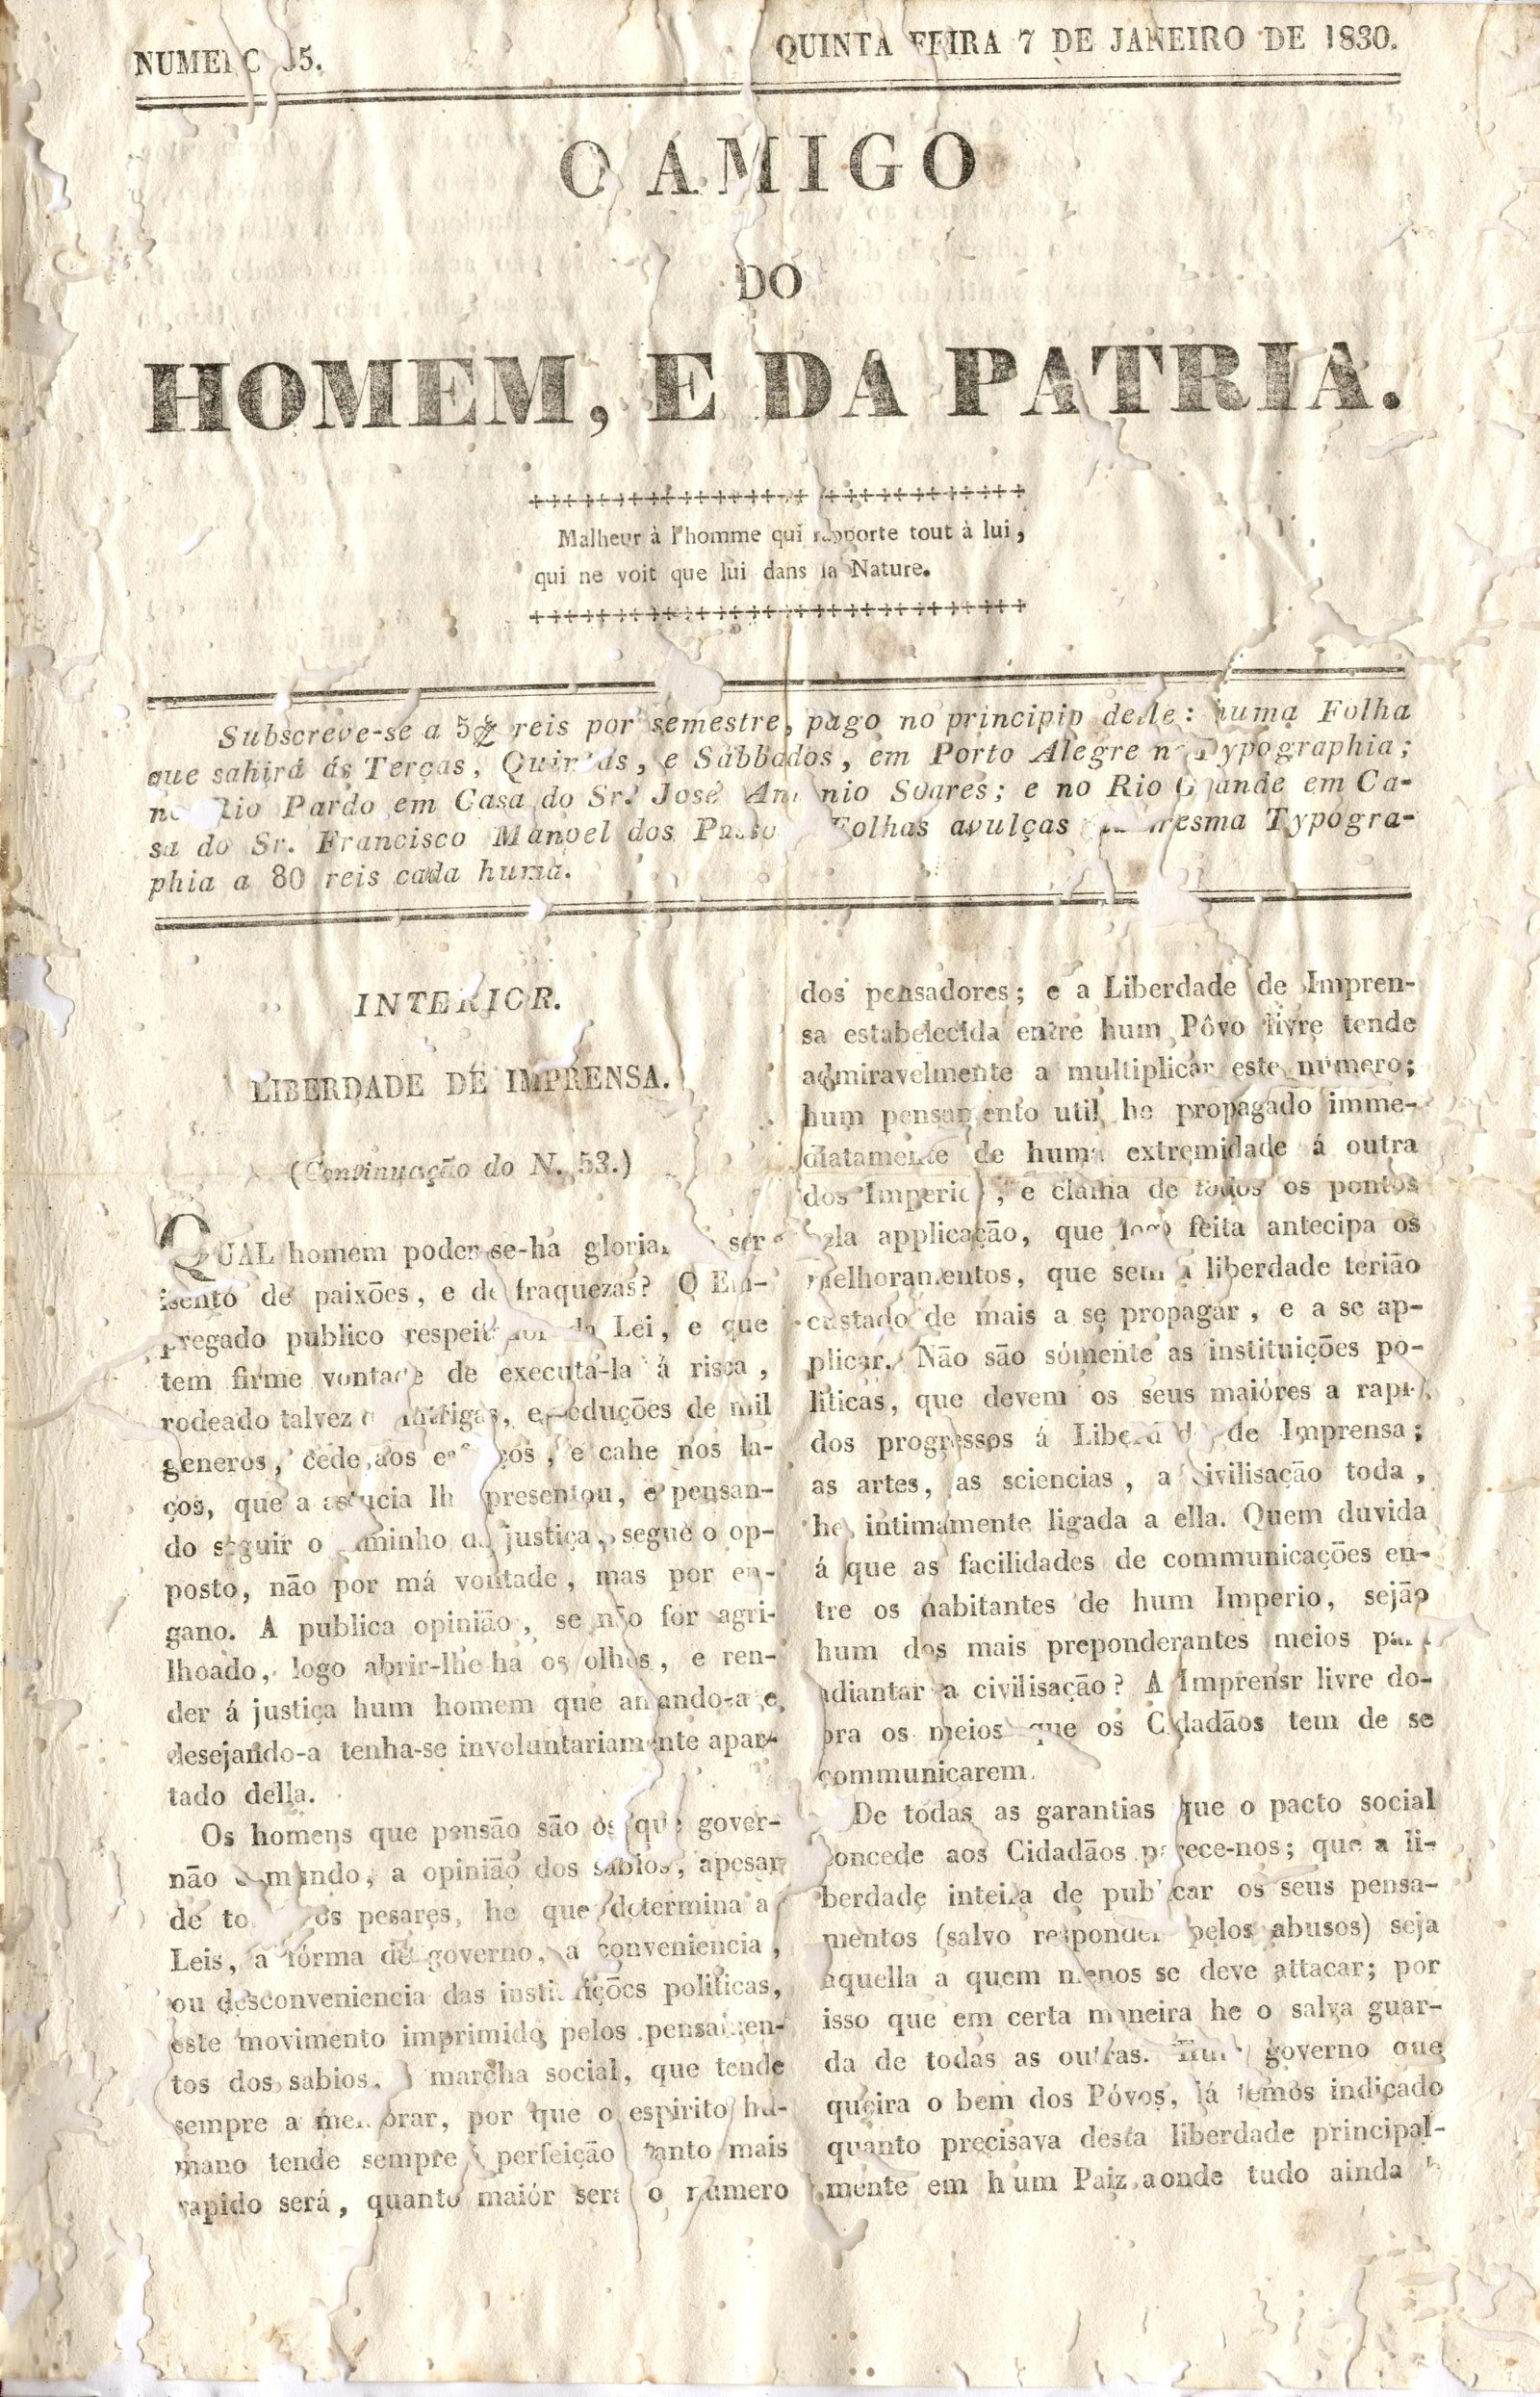 QUINTA FEIRA 7 DE JANEIRO DE 1830.
O AMIGO
DO
HOMEM, E DA PATRIA.
Malheur à l'homme qui rapporte tout à lui,
qui ne voit que lui dans la Nature.
Subscreve-se a 5$ reis por semestre, pago no principio delle: huma Folha
que sahirá ás Terças, Quintas, e Sabbados, em Porto Alegre na Typographia;
no Rio Pardo em Casa do Sr. José Antonio Soares; e no Rio Grande em Ca-
sa do Sr. Francisco Manoel dos Folhas avulças mesma Typogra-
phia a 80 reis cada huma.
INTERIOR.
LIBERDADE DE IMPRENSA.
(Continuação do N. 53.)
QUAL homem poder-se-ha gloriar ser
isento de paixões, e de fraquezas? O Em-
pregado publico respeitador da Lei, e que
tem firme vontade de executa-la á risca,
rodeado talvez intrigas, e seduções de mil
generos, cede aos e cahe nos la-
ços, que a astucia lh presentou, e pensan-
do seguir o caminho da justiça, segue o op-
posto, não por má vontade, mas por en-
gano. A publica opinião, se não for agri-
lhoado, logo abrir-lhe ha os olhos, e ren-
der á justiça hum homem que amando-a e
desejando-a tenha-se involuntariamente apar-
tado della.
Os homens que pensão são os que gover-
não o mundo, a opinião dos sabios, apesar
de todos os pesares, he que determina a
Leis, a fórma de governo, a conveniencia,
ou desconveniencia das instituições politicas,
este movimento imprimido pelos pensamen-
tos dos sabios. marcha social, que tende
sempre a melhorar, por que o espirito hu-
mano tende sempre á perfeição tanto mais
rapido será, quanto maiór será o numero
dos pensadores; e a Liberdade de Impren-
sa estabelecida entre hum Pôvo livre tende
admiravelmente a multiplicar este numero;
hum pensamento util he propagado imme-
diatamente de huma extremidade á outra
dos Imperio, e clama de todos os pontos
pela applicação, que logo feita antecipa os
melhoramentos, que sem a liberdade terião
custado de mais a se propagar, e a se ap-
plicar. Não são sómente as instituições po-
liticas, que devem os seus maióres a rapi-
dos progressos á Liberdade de Imprensa;
as artes, as sciencias, a civilisação toda,
he intimamente ligada a ella. Quem duvida
á que as facilidades de communicações en-
tre os habitantes de hum Imperio, sejão
hum dos mais preponderantes meios para
adiantar a civilisação? A Imprensr livre do-
bra os meios que os Cidadãos tem de se
communicarem.
De todas as garantias que o pacto social
concede aos Cidadãos parece-nos; que a li-
berdade inteira de publicar os seus pensa-
mentos (salvo responder pelos abusos) seja
aquella a quem menos se deve attacar; por
isso que em certa maneira he o salva guar-
da de todas as outras. Hum governo que
queira o bem dos Póvos, já temos indicado
quanto precisava desta liberdade principal-
mente em hum Paiz aonde tudo ainda